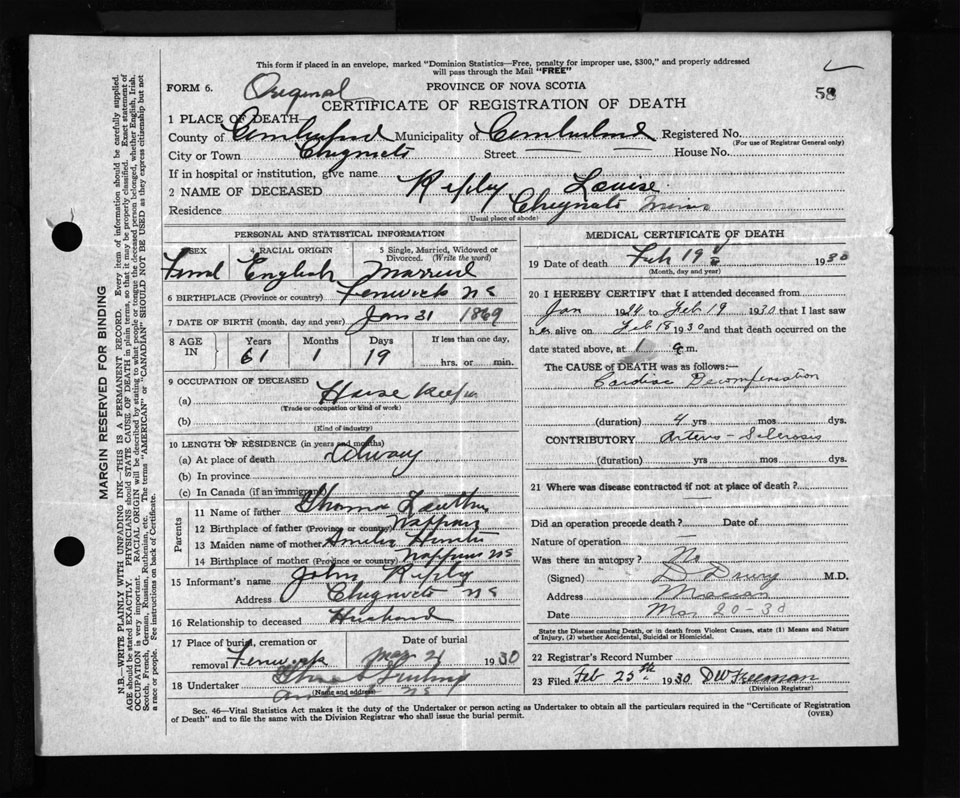 This form if placed in an envelope, marked "Dominion Statistics—Free, penalty for improper use, $300," and properly addressed
will pass through the Mail "FREE"
FORM 6. Original PROVINCE OF NOVA SCOTIA 58
CERTIFICATE OF REGISTRATION OF DEATH
1 PLACE OF DEATH—
County of Cumberland Municipality of Cumberland Registered No.
(For use of Registrar General only)
City or Town Chignecto Street House No.
If in hospital or institution, give name
2 NAME OF DECEASED Ripley Louise
Residence Chignecto Mines
(Usual place of abode)
PERSONAL AND STATISTICAL INFORMATION
SEX 4 RACIAL ORIGIN 5 Single, Married, Widowed or Divorced. (Write the word)
Femal English Married
6 BIRTHPLACE (Province or country) Fenwick NS
7 DATE OF BIRTH (month, day and year) Jan 31 1869
8 AGE IN Years Months Days If less than one day,
61 1 19 hrs. or min.
9 OCCUPATION OF DECEASED
(a) House Keeper
(Trade or occupation or kind of work)
(b)
(Kind of industry)
10 LENGTH OF RESIDENCE (in years and months)
(a) At place of death Always
(b) In province
(c) In Canada (if an immigrant)
Parents
11 Name of father Thomas
12 Birthplace of father (Province or country) Nappan
13 Maiden name of mother Amelia Hunter
14 Birthplace of mother (Province or country) Nappan NS
15 Informant's name John Ripley
Address Chignecto NS
16 Relationship to deceased Husband
17 Place of burial, cremation or Date of burial
removal Fenwick 21 1930
18 Undertaker
(Name and address) NS
MEDICAL CERTIFICATE OF DEATH
19 Date of death Feb 19 1930
(Month, day and year)
20 I HEREBY CERTIFY that I attended deceased from
Jan 19 to Feb 19 1930 that I last saw
her alive on Feb 18 1930 and that death occurred on the
date stated above, at 1 a.m.
The CAUSE of DEATH was as follows:—
Cardiac Decompensation
(duration) 4 yrs mos dys.
CONTRIBUTORY Arterio-Sclerosis
(duration) yrs. mos dys.
21 Where was disease contracted if not at place of death?
Did an operation precede death? Date of
Nature of operation —
Was there an autopsy? No
(Signed) D Drury M.D.
Address Maccan
Date Mar 20-30
State the Disease causing Death, or in death from Violent Causes, state (1) Means and Nature
of Injury, (2) whether Accidental, Suicidal or Homicidal.
22 Registrar's Record Number
23 Filed Feb 25th 1930 DW Freeman
(Division Registrar)
Sec. 46—Vital Statistics Act makes it the duty of the Undertaker or person acting as Undertaker to obtain all the particulars required in the "Certificate of Registration
of Death" and to file the same with the Division Registrar who shall issue the burial permit. (OVER)
MARGIN RESERVED FOR BINDING
N.B.—WRITE PLAINLY WITH UNFADING INK—THIS IS A PERMANENT RECORD. Every item of information should be carefully supplied.
AGE should be stated EXACTLY. PHYSICIANS should STATE CAUSE OF DEATH in plain terms, so that it may be properly classified. Exact statement of
OCCUPATION is very important. RACIAL ORIGIN will be described by stating to what people or tongue the deceased person belonged, whether English, Irish,
Scotch, French, German, Russian, Ruthenian, etc. The terms "AMERICAN" or "CANADIAN" SHOULD NOT BE USED as they express citizenship but not
a race or people. See instructions on back of Certificate.